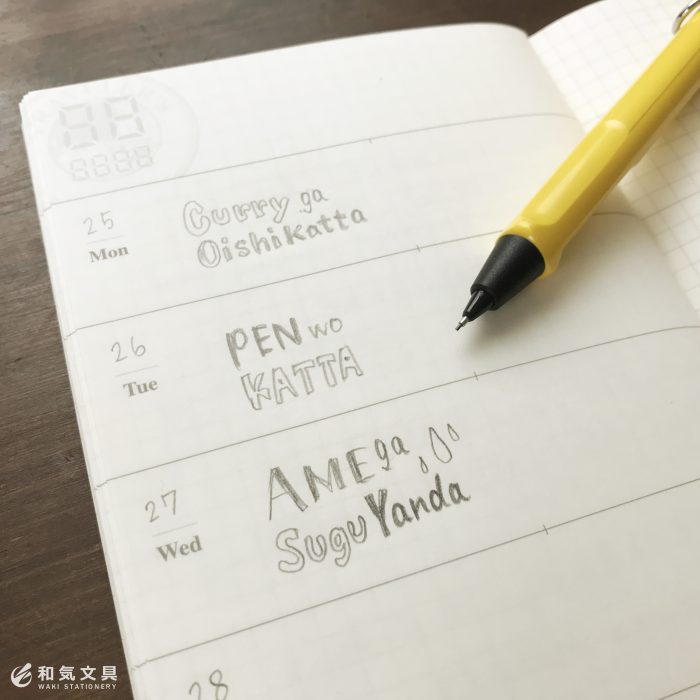 25
Mon
Curry ga
Oishikatta
26
Tue
PEN wo
KATTA
27
Wed
AME ga
Sugu Yanda
28
和気文具
WAKI STATIONERY